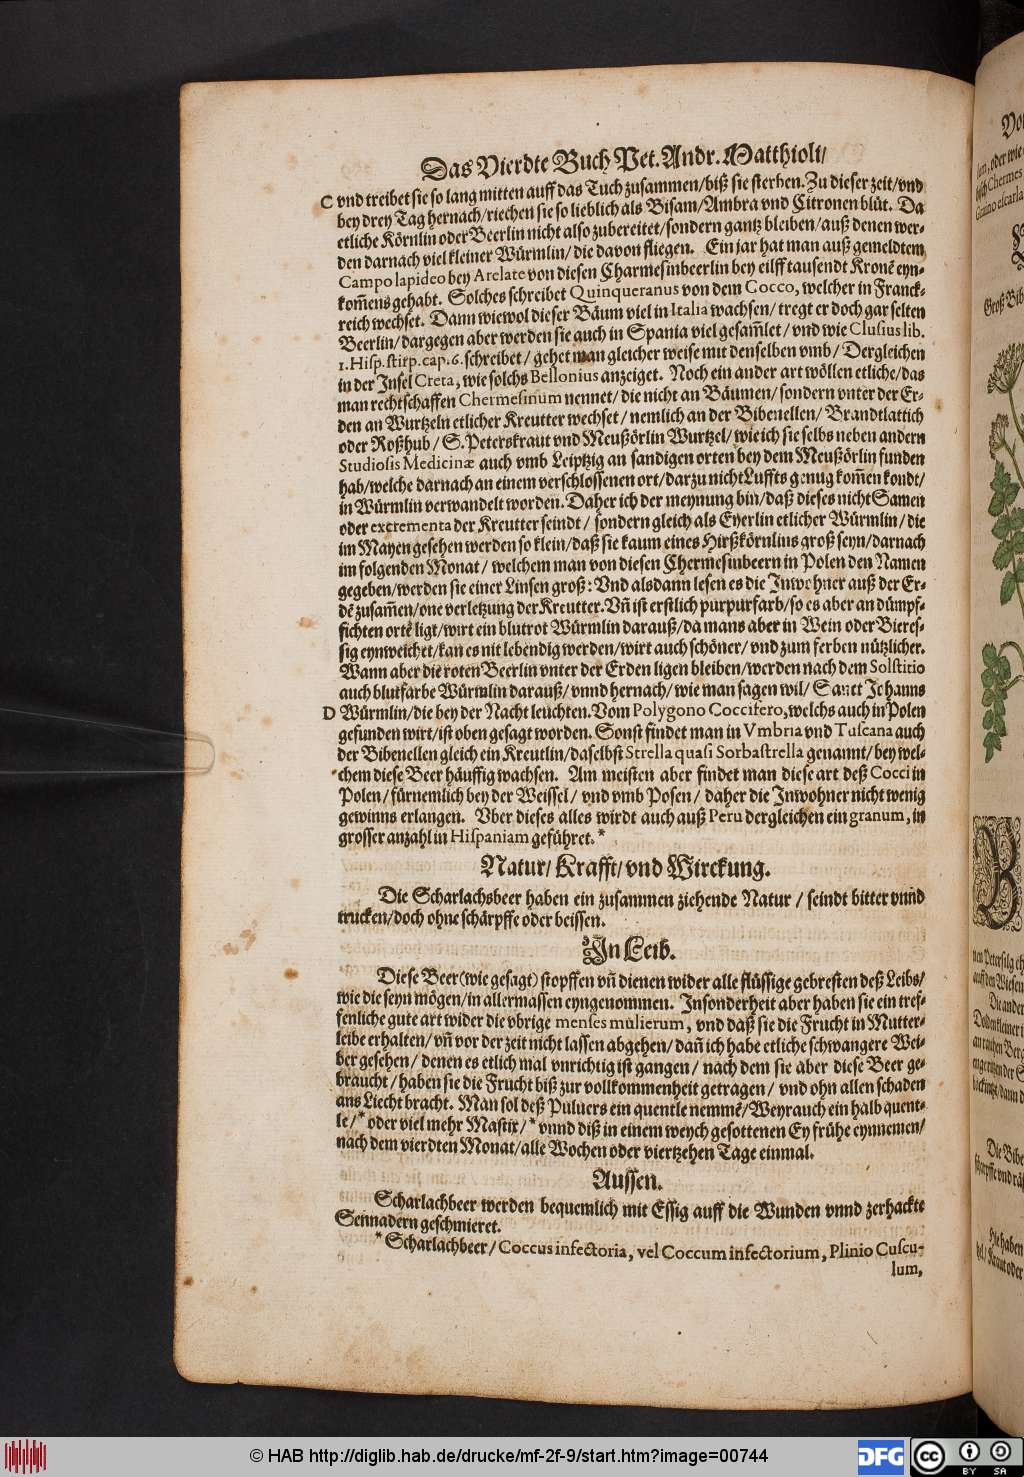 Das Vierdte Buch Pet. Andr. Matthioli/
C vnd treibet sie so lang mitten auff das Tuch zusammen/biß sie sterben. Zu dieser zeit/vnd
bey drey Tag hernach/riechen sie so lieblich als Bisam/Ambra vnd Citronen blüt. Da
etliche Körnlin oder Beerlin nicht also zubereitet/sondern gantz bleiben/auß denen wer-
den darnach viel kleiner Würmlin/die davon fliegen. Ein jar hat man auß gemeldtem
Campo lapideo bey Arelate von diesen Charmesinbeerlin bey eilff tausendt Kronē eyn-
kom̄ens gehabt. Solches schreibet Quinqueranus von dem Cocco, welcher in Franck-
reich wechset. Dann wiewol dieser Bäum viel in Italia wachsen/tregt er doch gar selten
Beerlin/dargegen aber werden sie auch in Spania viel gesam̄let/vnd wie Clusius lib.
1. Hisp. stirp. cap. 6. schreibet/gehet man gleicher weise mit denselben vmb/Dergleichen
in der Insel Creta, wie solchs Bellonius anzeiget. Noch ein ander art wöllen etliche/das
man rechtschaffen Chermesinum nennet/die nicht an Bäumen/sondern vnter der Er-
den an Wurtzeln etlicher Kreutter wechset/nemlich an der Bibenellen/Brandtlattich
oder Roßhub/S. Peterskraut vnd Meußörlin Wurtzel/wie ich sie selbs neben andern
Studiosis Medicinæ auch vmb Leiptzig an sandigen orten bey dem Meußörlin funden
hab/welche darnach an einem verschlossenen ort/darzu nicht Luffts genug kom̄en kondt/
in Würmlin verwandelt worden. Daher ich der meynung bin/daß dieses nicht Samen
oder excrementa der Kreutter seindt/sondern gleich als Eyerlin etlicher Würmlin/die
im Mayen gesehen werden so klein/daß sie kaum eines Hirßkörnlins groß seyn/darnach
im folgenden Monat/welchem man von diesen Chermesinbeern in Polen den Namen
gegeben/werden sie einer Linsen groß: Vnd alsdann lesen es die Inwohner auß der Er-
dē zusam̄en/one verletzung der Kreutter. Vn̄ ist erstlich purpurfarb/so es aber an dümpf-
fichten ortē ligt/wirt ein blutrot Würmlin darauß/da mans aber in Wein oder Bieres-
sig eynweichet/kan es nit lebendig werden/wirt auch schöner/vnd zum ferben nützlicher.
Wann aber die roten Beerlin vnter der Erden ligen bleiben/werden nach dem Solstitio
auch blutfarbe Würmlin darauß/vnnd hernach/wie man sagen wil/Sanct Johanns
D Würmlin/die bey der Nacht leuchten. Vom Polygono Coccifero, welchs auch in Polen
gefunden wirt/ist oben gesagt worden. Sonst findet man in Vmbria vnd Tuscana auch
der Bibenellen gleich ein Kreutlin/daselbst Strella quasi Sorbastrella genannt/bey wel-
chem diese Beer häuffig wachsen. Am meisten aber findet man diese art deß Cocci in
Polen/fürnemlich bey der Weissel/vnd vmb Posen/daher die Inwohner nicht wenig
gewinns erlangen. Vber dieses alles wirdt auch auß Peru dergleichen ein granum, in
grosser anzahl in Hispaniam geführet.*
Natur/Krafft/vnd Wirckung.
Die Scharlachsbeer haben ein zusammen ziehende Natur/seindt bitter vnnd
trucken/doch ohne schärpffe oder beissen.
In Leib.
Diese Beer (wie gesagt) stopffen vn̄ dienen wider alle flüssige gebresten deß Leibs/
wie die seyn mögen/in allermassen eyngenommen. Insonderheit aber haben sie ein tref-
fenliche gute art wider die vbrige menses mulierum, vnd daß sie die Frucht in Mutter-
leibe erhalten/vn̄ vor der zeit nicht lassen abgehen/dan̄ ich habe etliche schwangere Wei-
ber gesehen/denen es etlich mal vnrichtig ist gangen/nach dem sie aber diese Beer ge-
braucht/haben sie die Frucht biß zur vollkommenheit getragen/vnd ohn allen schaden
ans Liecht bracht. Man sol deß Puluers ein quentle nemmē/Weyrauch ein halb quent-
le/* oder viel mehr Mastix/* vnnd diß in einem weych gesottenen Ey frühe eynnemen/
nach dem vierdten Monat/alle Wochen oder viertzehen Tage einmal.
Aussen.
Scharlachbeer werden bequemlich mit Essig auff die Wunden vnnd zerhackte
Sennadern geschmieret.
* Scharlachbeer/Coccus infectoria, vel Coccum infectorium, Plinio Cuscu-
lum,
Groß Bib
Die ander
Die Bibe
© HAB http://diglib.hab.de/drucke/mf-2f-9/start.htm?image=00744
DFG
cc BY SA